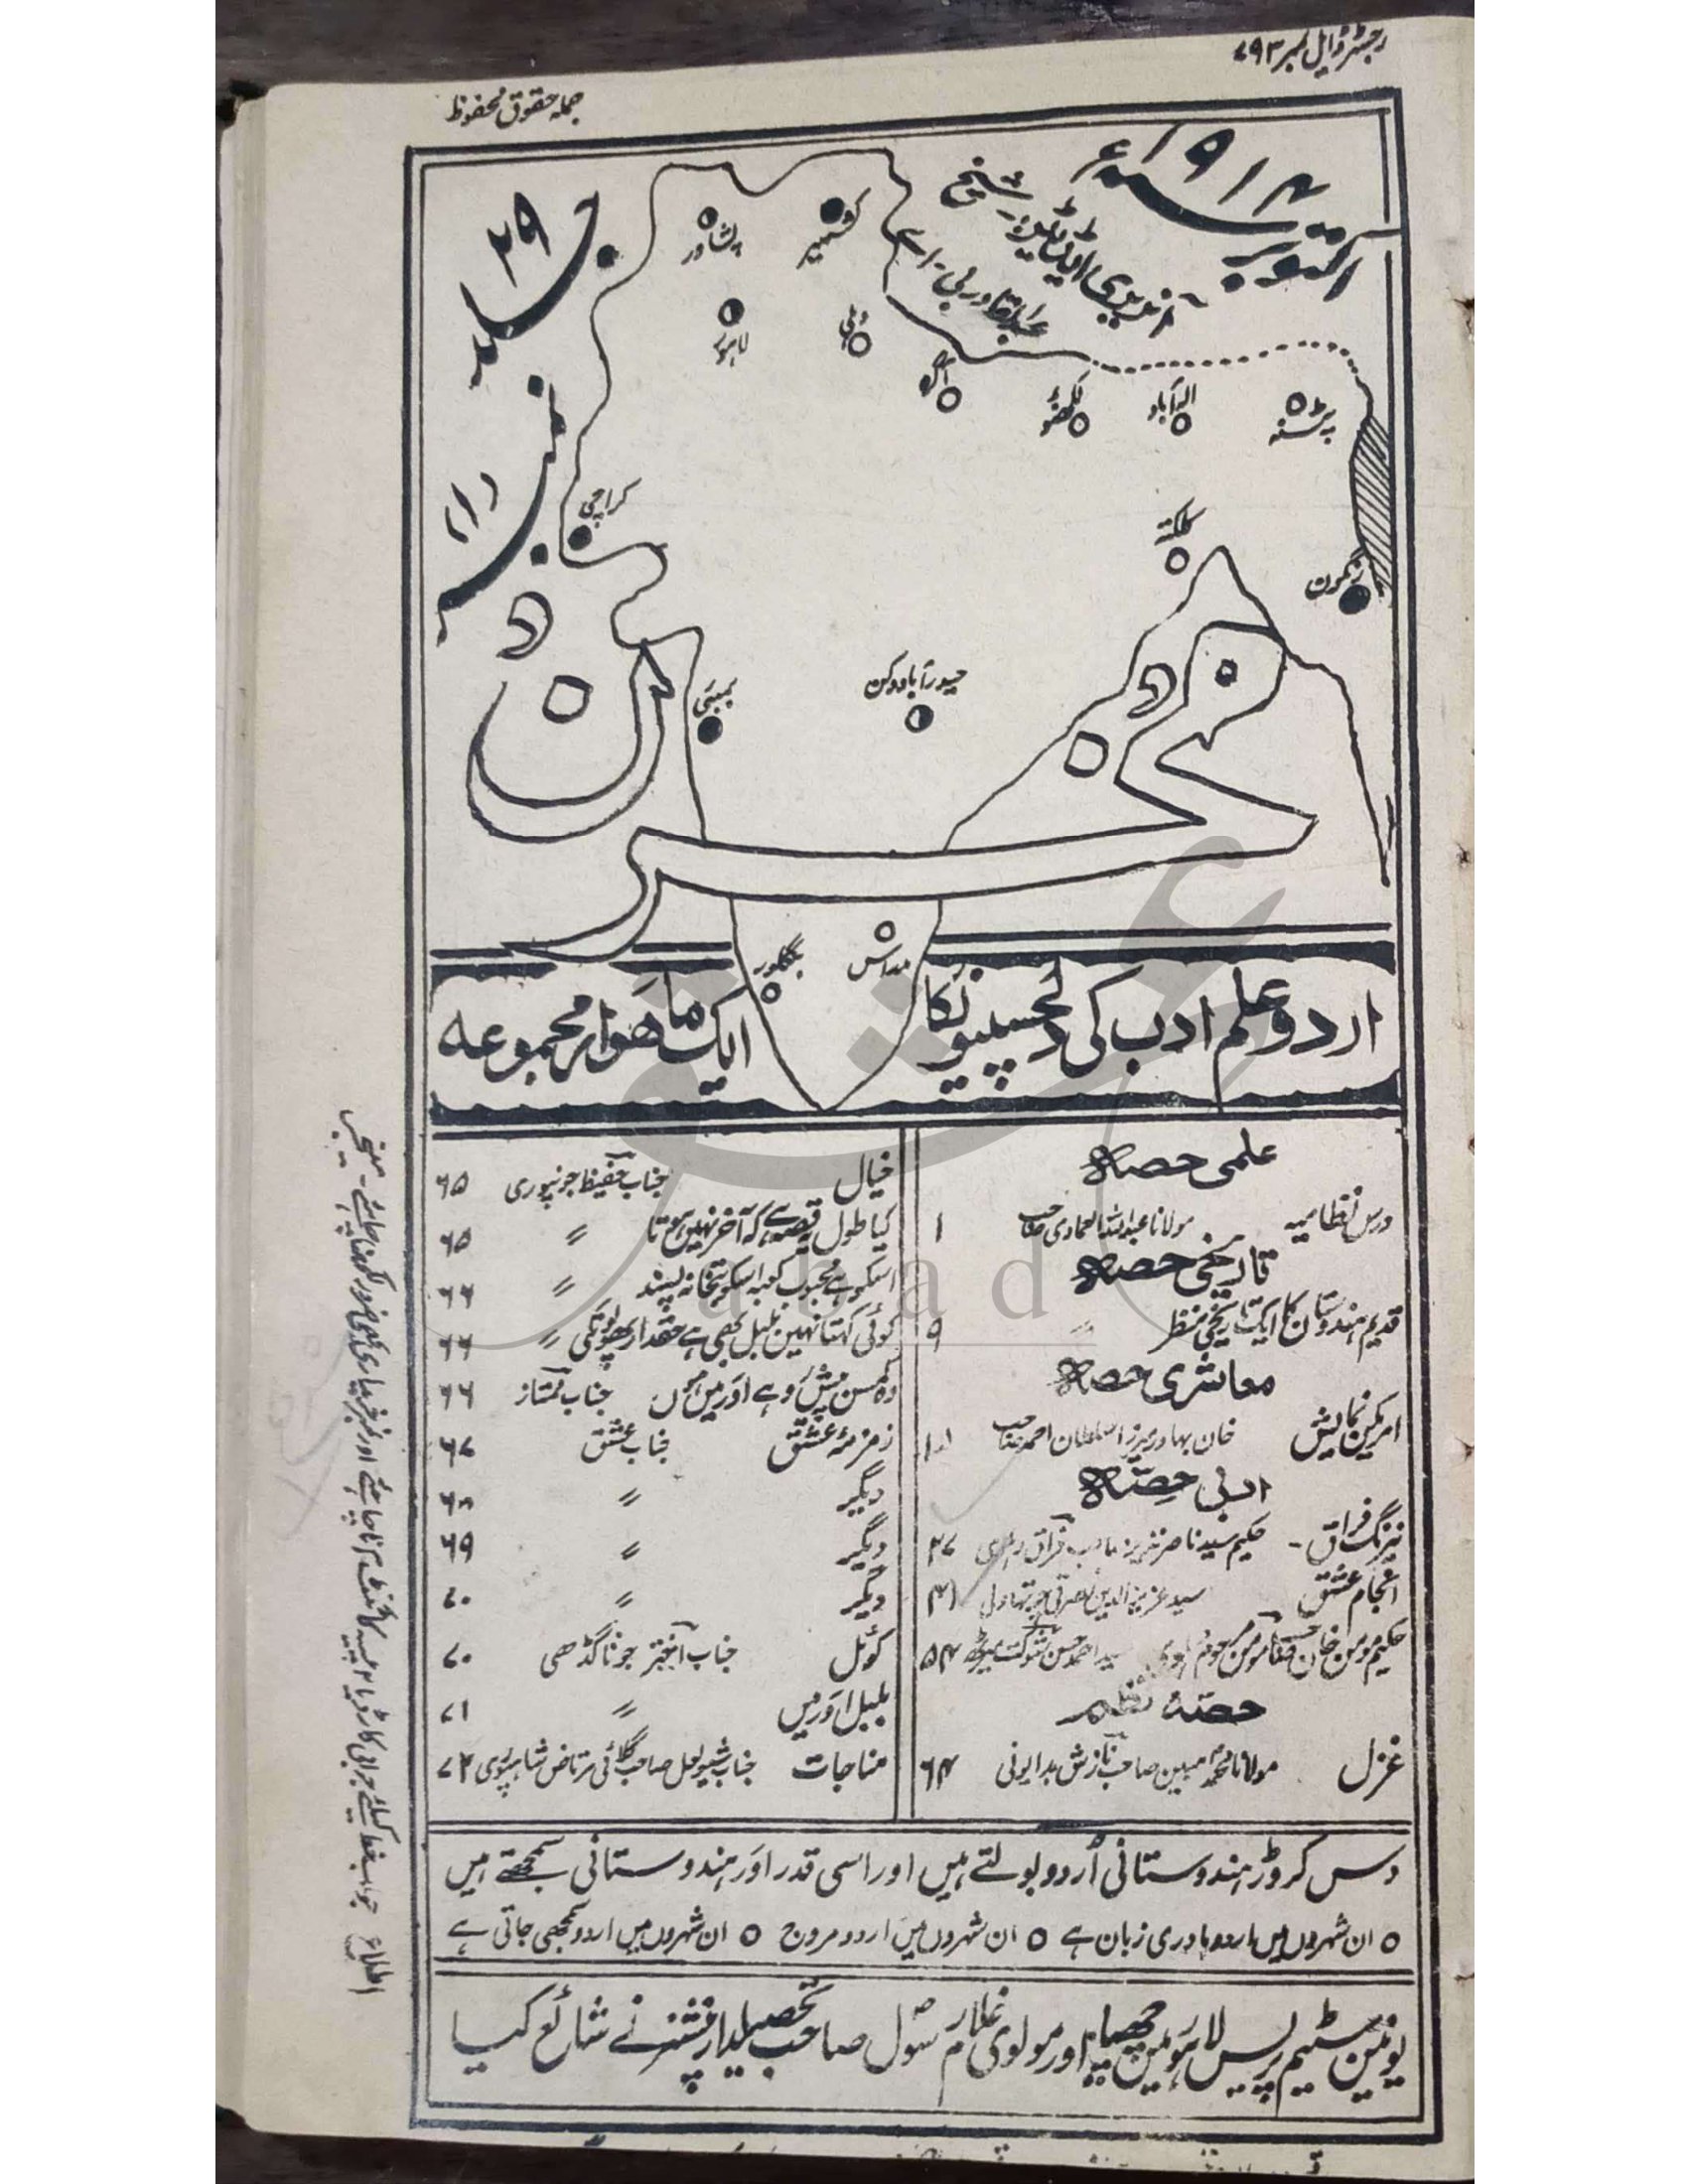 رجسٹرڈ ایل نمبر ۷۹۳
جملہ حقوق محفوظ
اکتوبر سنہ ۱۹۱۴ء
آنریری ایڈیٹر شیخ
عبدالقادر بی۔ اے
جلد ۲۹
نمبر ۱
پشاور
کشمیر
لاہور
دہلی
آگرہ
لکھنؤ
الہ آباد
پٹنہ
کراچی
کلکتہ
رنگون
بمبئی
حیدرآباد دکن
مخزن
بنگلور
مدراس
اردو علم ادب کی دلچسپیوں کا
ایک ماہوار مجموعہ
علمی حصہ
درس نظامیہ مولانا عبداللہ العمادی صاحب ۱
تاریخی حصہ
قدیم ہندوستان کا ایک تاریخی منظر 〃 ۹
معاشری حصہ
امریکن نمایش خان بہادر میرزا سلطان احمد صاحب
ادبی حصہ
نیرنگ فراق۔ حکیم سید ناصر نذیر صاحب فراق دہلوی ۳۷
انجام عشق سید عزیز الدین ۴۱
حکیم مومن خان صاحب مومن مرحوم دہلوی سید احمد حسن شوکت میرٹھ ۵۴
حصۂ نظم
غزل مولانا محمد مبین صاحب نازش بدایونی ۶۴
خیال جناب حفیظ جونپوری ۶۵
کیا طول قصہ ہے کہ آخر نہیں ہوتا 〃 ۶۵
اسکو ہے محبوب کعبہ اسکو بتخانہ پسند 〃 ۶۶
کوئی کہتا نہیں بلبل بھی ہے حقدار پھولونکی 〃 ۶۶
وہ کمسن پیش رو ہے اور میں ہوں جناب ممتاز ۶۶
زمزمۂ عشق جناب عشق ۶۷
دیگر 〃 ۶۸
دیگر 〃 ۶۹
دیگر 〃 ۷۰
کوئل جناب اختر جوناگڈھی ۷۰
بلبل اور میں 〃 ۷۱
مناجات جناب شیو لعل صاحب مرتاض شاہپوری ۷۲
دس کروڑ ہندوستانی اُردو بولتے ہیں اور اسی قدر اور ہندوستانی سمجھتے ہیں
ان شہروں میں اردو مادری زبان ہے ان شہروں میں اردو مروج ان شہروں میں اردو سمجھی جاتی ہے
یونین سٹیم پریس لاہور میں چھپا اور مولوی غلام رسول صاحب تحصیلدار پنشنر نے شائع کیا
اطلاع جواب خط کیلئے جوابی کارڈ یا ۲ پیسہ کا ٹکٹ آنا چاہئے اور نمبر خریداری بھی ضرور لکھنا چاہئے۔ منیجر
abad